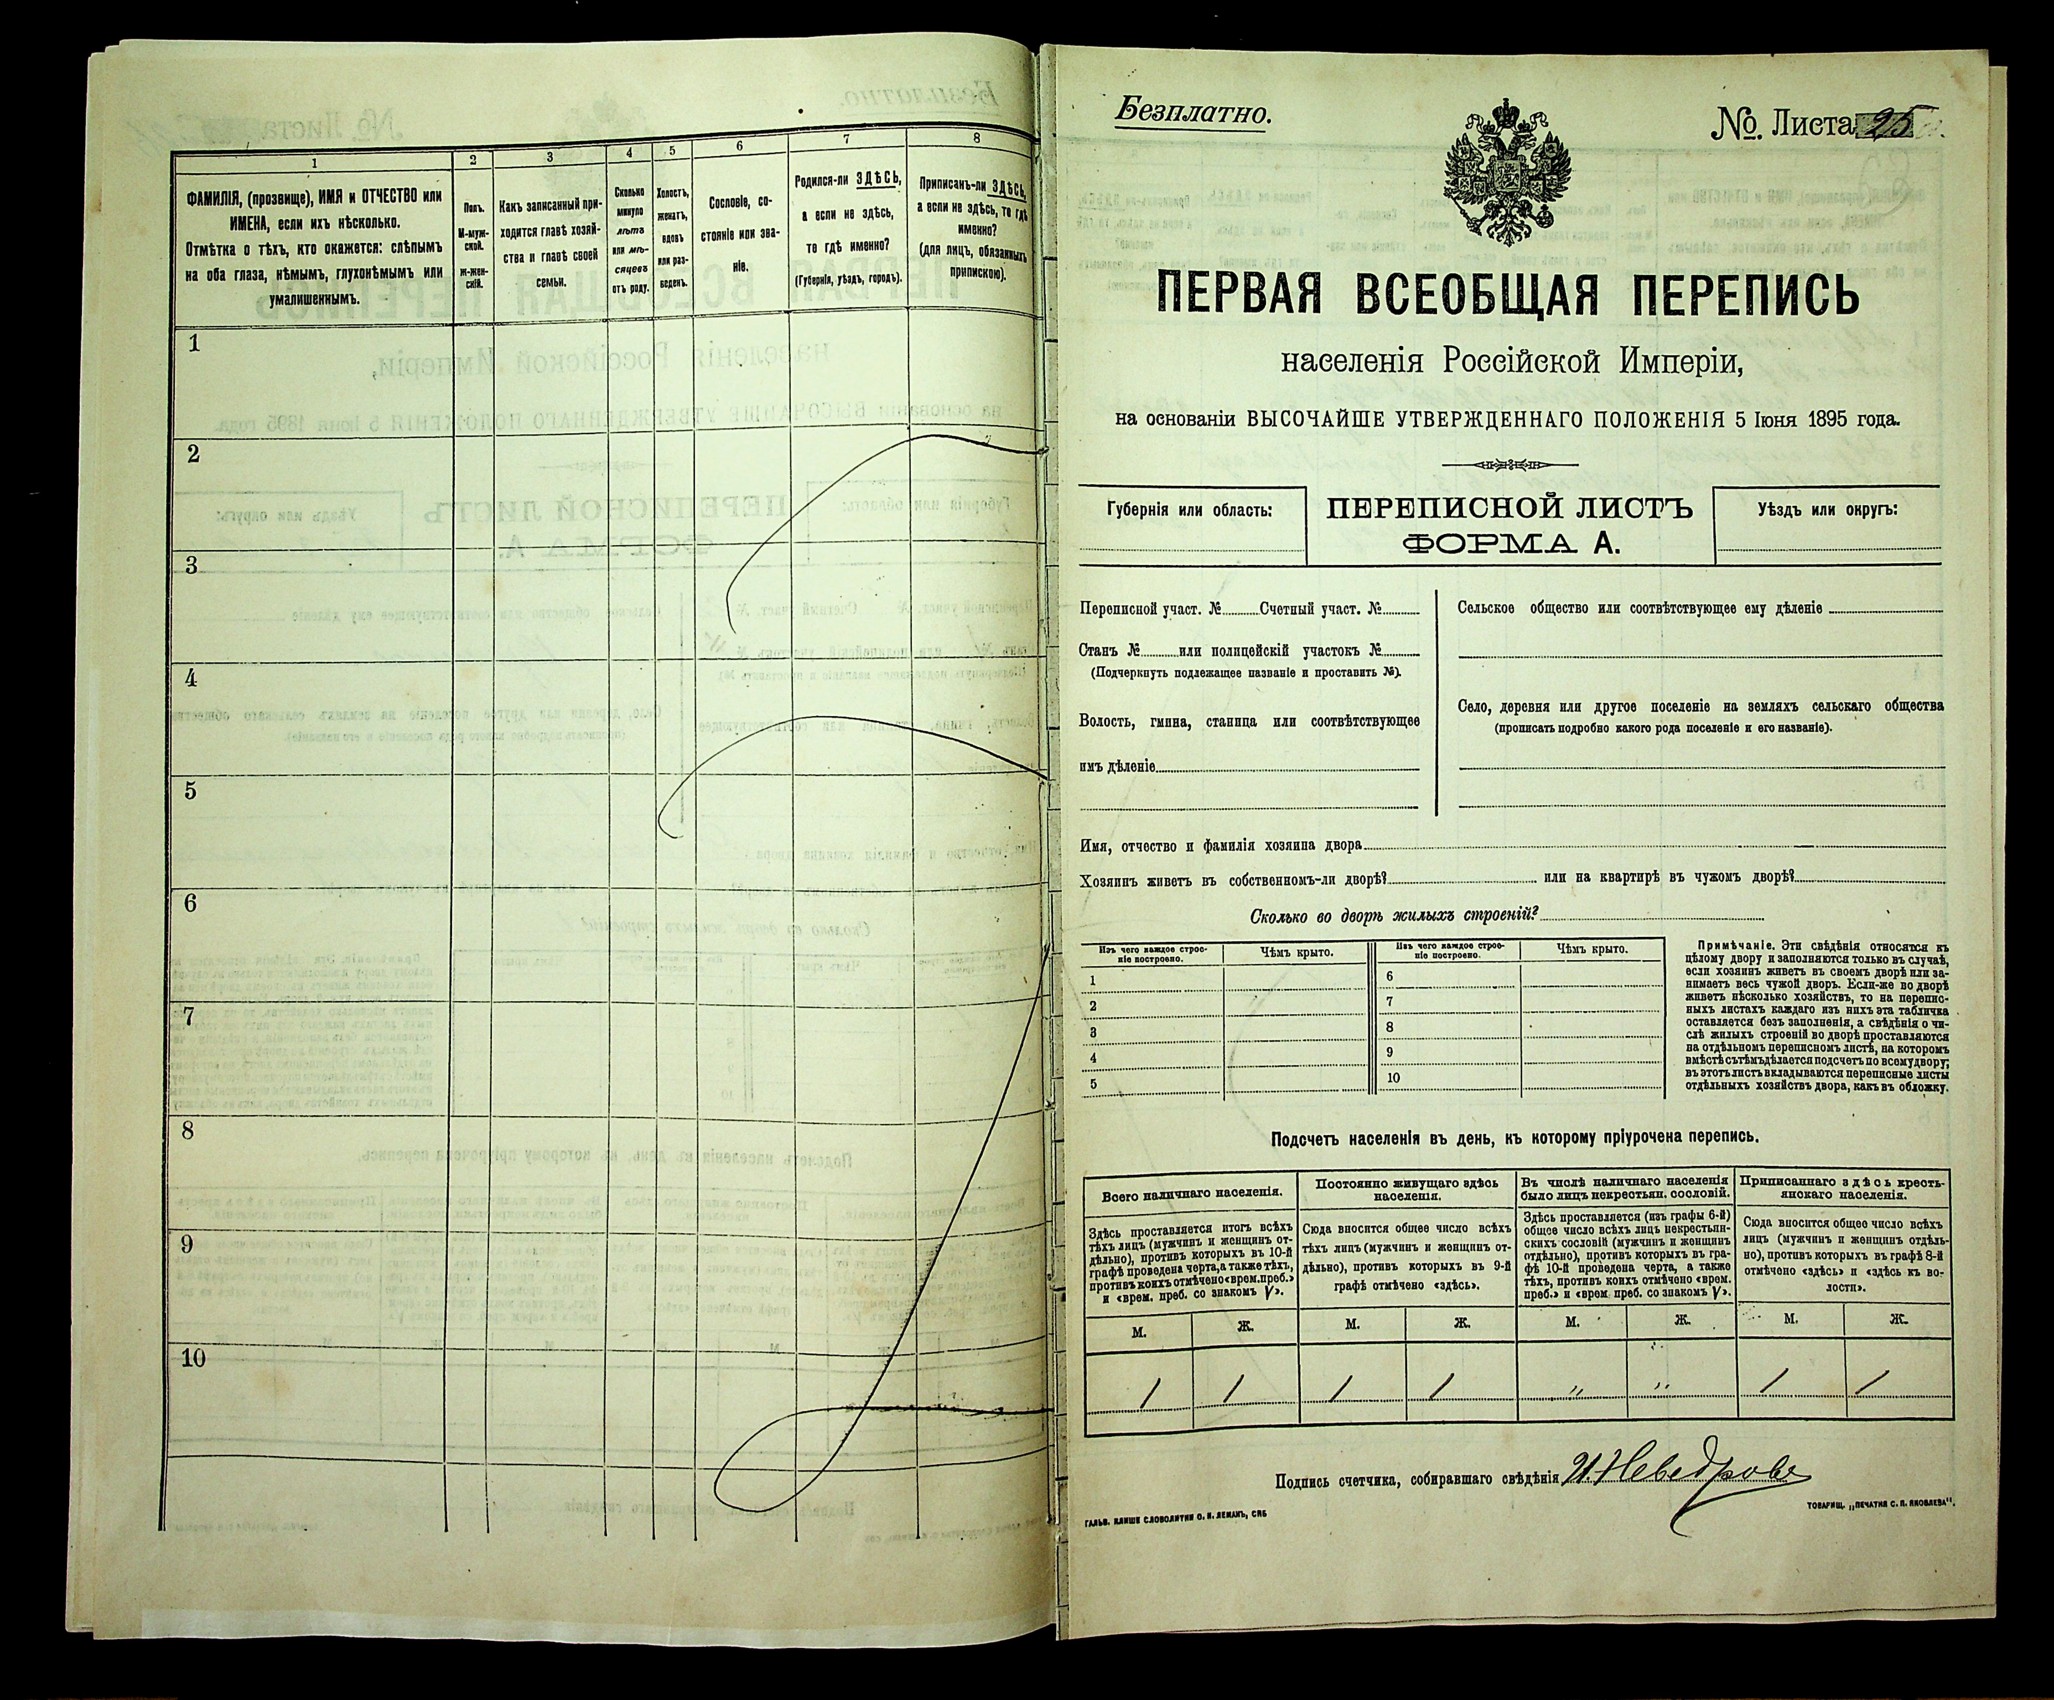 1
2
3
4
5
6
7
8
ФАМИЛІЯ, (прозвище), ИМЯ и ОТЧЕСТВО или
ИМЕНА, если ихъ нѣсколько.
Отмѣтка о тѣхъ, кто окажется: слѣпымъ
на оба глаза, нѣмымъ, глухонѣмымъ или
умалишеннымъ.
Полъ.
М-муж-
ской.
ж-жен-
скій.
Какъ записанный при-
ходится главѣ хозяй-
ства и главѣ своей
семьи.
Сколько
минуло
лѣтъ
или мѣ-
сяцевъ
отъ роду.
Холостъ,
женатъ,
вдовъ
или раз-
веденъ.
Сословіе, со-
стояніе или зва-
ніе.
Родился-ли ЗДѢСЬ,
а если не здѣсь,
то гдѣ именно?
(Губернія, уѣздъ, городъ).
Приписанъ-ли ЗДѢСЬ,
а если не здѣсь, то гдѣ
именно?
(для лицъ, обязанныхъ
припискою).
1
2
3
4
5
6
7
8
9
10
Безплатно.
№. Листа 25
ПЕРВАЯ ВСЕОБЩАЯ ПЕРЕПИСЬ
населенія Россійской Имперіи,
на основаніи ВЫСОЧАЙШЕ УТВЕРЖДЕННАГО ПОЛОЖЕНІЯ 5 Іюня 1895 года.
Губернія или область:
ПЕРЕПИСНОЙ ЛИСТЪ
ФОРМА А.
Уѣздъ или округъ:
Переписной участ. № Счетный участ. №
Станъ № или полицейскій участокъ №
(Подчеркнуть подлежащее названіе и проставить №).
Волость, гмина, станица или соотвѣтствующее
имъ дѣленіе
Сельское общество или соотвѣтствующее ему дѣленіе
Село, деревня или другое поселеніе на земляхъ сельскаго общества
(прописать подробно какого рода поселеніе и его названіе).
Имя, отчество и фамилія хозяина двора
Хозяинъ живетъ въ собственномъ-ли дворѣ? или на квартирѣ въ чужомъ дворѣ?
Сколько во дворѣ жилыхъ строеній?
Изъ чего каждое строе-
ніе построено.
Чѣмъ крыто.
Изъ чего каждое строе-
ніе построено.
Чѣмъ крыто.
1
2
3
4
5
6
7
8
9
10
Примѣчаніе. Эти свѣдѣнія относятся къ
цѣлому двору и заполняются только въ случаѣ,
если хозяинъ живетъ въ своемъ дворѣ или за-
нимаетъ весь чужой дворъ. Если-же во дворѣ
живетъ нѣсколько хозяйствъ, то на перепис-
ныхъ листахъ каждаго изъ нихъ эта табличка
оставляется безъ заполненія, а свѣдѣнія о чи-
слѣ жилыхъ строеній во дворѣ проставляются
на отдѣльномъ переписномъ листѣ, на которомъ
вмѣстѣ съ тѣмъ дѣлается подсчетъ по всему двору;
въ этотъ листъ вкладываются переписные листы
отдѣльныхъ хозяйствъ двора, какъ въ обложку.
Подсчетъ населенія въ день, къ которому пріурочена перепись.
Всего наличнаго населенія.
Постоянно живущаго здѣсь
населенія.
Въ числѣ наличнаго населенія
было лицъ некрестьян. сословій.
Приписаннаго здѣсь кресть-
янскаго населенія.
Здѣсь проставляется итогъ всѣхъ
тѣхъ лицъ (мужчинъ и женщинъ от-
дѣльно), противъ которыхъ въ 10-й
графѣ проведена черта, а также тѣхъ,
противъ коихъ отмѣчено «врем. преб.»
и «врем. преб. со знакомъ V».
Сюда вносится общее число всѣхъ
тѣхъ лицъ (мужчинъ и женщинъ от-
дѣльно), противъ которыхъ въ 9-й
графѣ отмѣчено «здѣсь».
Здѣсь проставляется (изъ графы 6-й)
общее число всѣхъ лицъ некрестьян-
скихъ сословій (мужчинъ и женщинъ
отдѣльно), противъ которыхъ въ гра-
фѣ 10-й проведена черта, а также
тѣхъ, противъ коихъ отмѣчено «врем.
преб.» и «врем. преб. со знакомъ V».
Сюда вносится общее число всѣхъ
лицъ (мужчинъ и женщинъ отдѣль-
но), противъ которыхъ въ графѣ 8-й
отмѣчено «здѣсь» и «здѣсь къ во-
лости».
М. Ж. М. Ж. М. Ж. М. Ж.
1 1 1 1 " " 1 1
Подпись счетчика, собиравшаго свѣдѣнія И. Неведровъ
ГАЛЬВ. КЛИШЕ СЛОВОЛИТНИ О. И. ЛЕМАНЪ, СПБ
ТОВАРИЩ. „ПЕЧАТНЯ С. П. ЯКОВЛЕВА".